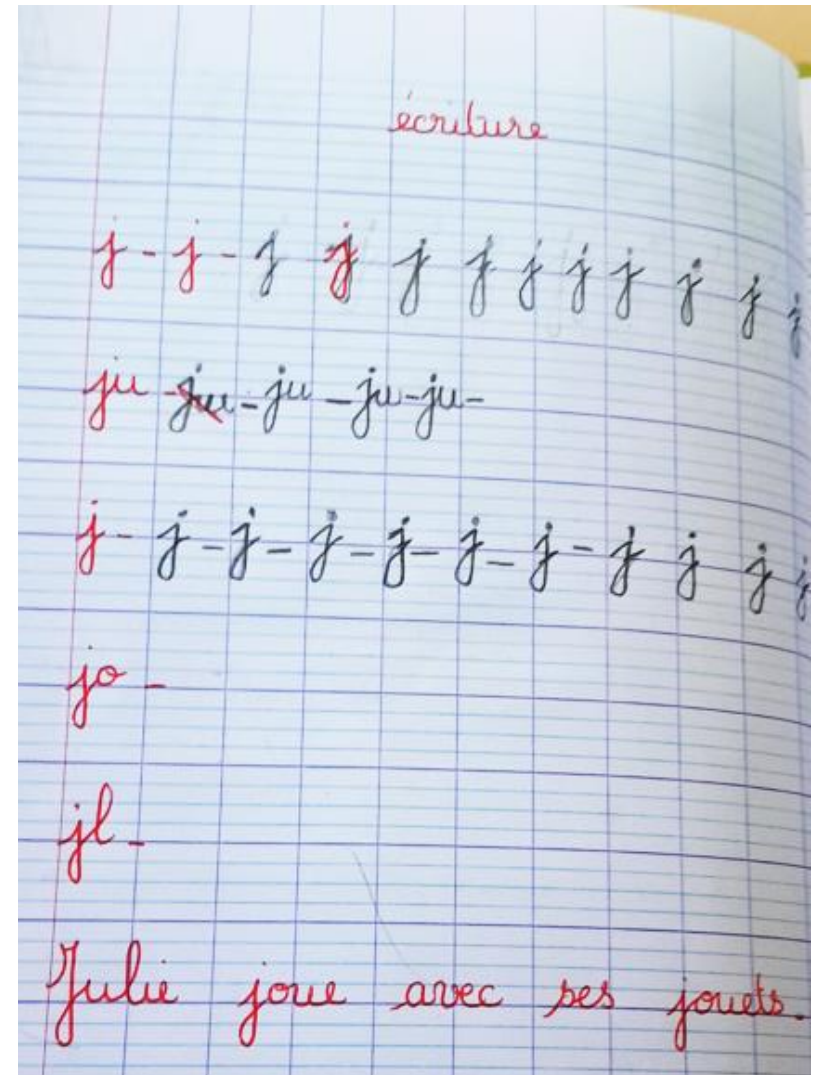 écriture
j - j - j j j j j j j j j j
ju - ju - ju - ju - ju -
j - j - j - j - j - j - j - j j j j
jo -
jl -
Julie joue avec ses jouets.